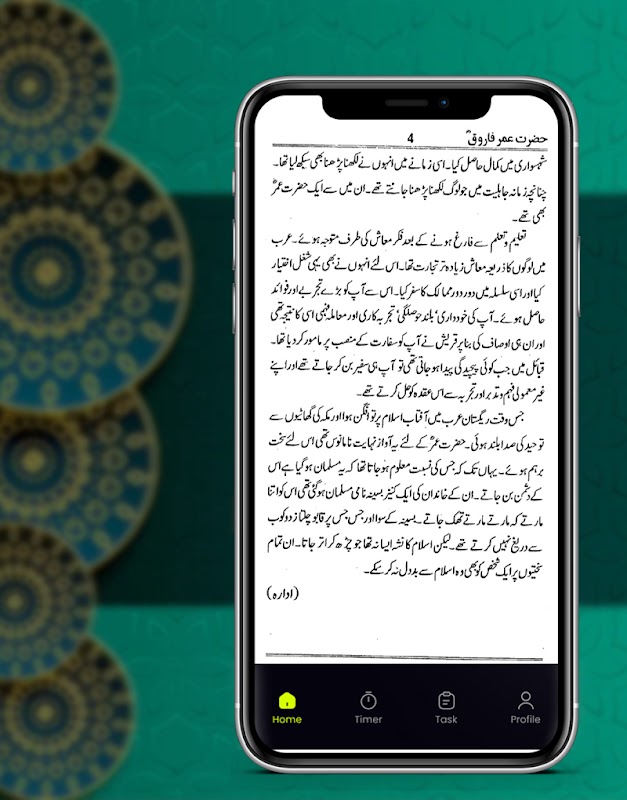 حضرت عمر فاروقؓ 4
شہسواری میں کمال حاصل کیا۔ اسی زمانے میں انہوں نے لکھنا پڑھنا بھی سیکھ لیا تھا۔
چنانچہ زمانہ جاہلیت میں جو لوگ لکھنا پڑھنا جانتے تھے۔ ان میں سے ایک حضرت عمرؓ
بھی تھے۔
تعلیم و تعلم سے فارغ ہونے کے بعد فکر معاش کی طرف متوجہ ہوئے۔ عرب
میں لوگوں کا ذریعہ معاش زیادہ تر تجارت تھا۔ اس لئے انہوں نے بھی یہی شغل اختیار
کیا اور اسی سلسلہ میں دور دور ممالک کا سفر کیا۔ اس سے آپ کو بڑے تجربے اور فوائد
حاصل ہوئے۔ آپ کی خودداری' بلند حوصلگی' تجربہ کاری اور معاملہ فہمی اسی کا نتیجہ تھی
اور ان ہی اوصاف کی بنا پر قریش نے آپ کو سفارت کے منصب پر مامور کر دیا تھا۔
قبائل میں جب کوئی پیچیدگی پیدا ہو جاتی تھی تو آپ ہی سفیر بن کر جاتے تھے اور اپنے
غیر معمولی فہم و تدبر اور تجربہ سے اس عقدہ کو حل کرتے تھے۔
جس وقت ریگستان عرب میں آفتاب اسلام پر تو افگن ہوا اور مکہ کی گھاٹیوں سے
توحید کی صدا بلند ہوئی۔ حضرت عمرؓ کے لئے یہ آواز نہایت نامانوس تھی اس لئے سخت
برہم ہوئے۔ یہاں تک کہ جس کی نسبت معلوم ہو جاتا تھا کہ یہ مسلمان ہو گیا ہے اس
کے دشمن بن جاتے۔ ان کے خاندان کی ایک کنیز بسینہ نامی مسلمان ہو گئی تھی اس کو اتنا
مارتے کہ مارتے مارتے تھک جاتے۔ بسینہ کے سوا اور جس جس پر قابو چلتا زدوکوب
سے دریغ نہیں کرتے تھے۔ لیکن اسلام کا نشہ ایسا نہ تھا جو چڑھ کر اتر جاتا۔ ان تمام
سختیوں پر ایک شخص کو بھی وہ اسلام سے بددل نہ کر سکے۔
(ادارہ)
Home Timer Task Profile